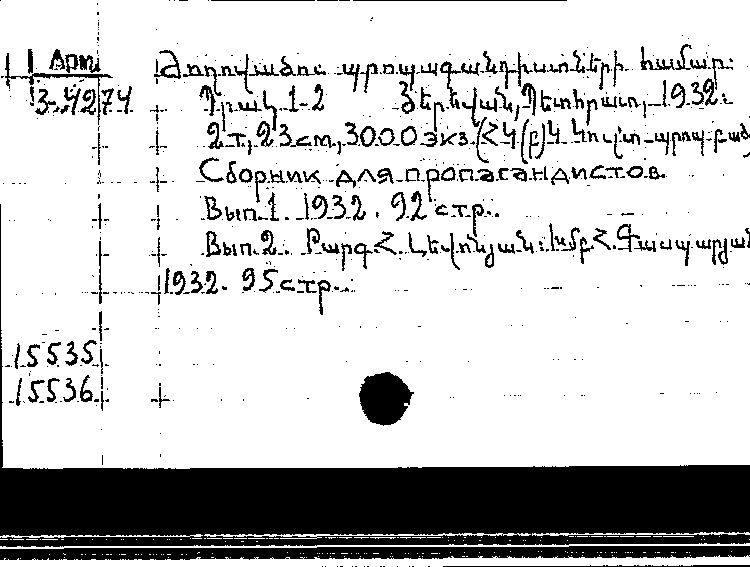 Առու Ժողովածու պրոպագանդիստների համար:
3-4274 Պրակ 1-2 Յերեվան, Պետհրատ, 1932:
2 т, 23 см, 3000 экз. (ՀԿ(բ)Կ Կուլտ-պրոպ բաժ
Сборник для пропагандистов.
Вып. 1. 1932. 92 стр.
Вып. 2. Թարգ. Հ. Լեվոնյան: Խմբ. Հ. Գասպարյան
1932. 95 стр.
15535
15536